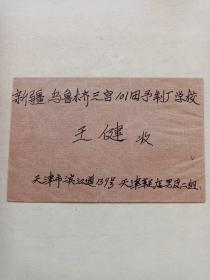 新疆乌鲁木齐三宫101团予制厂学校
王健收
天津市滨江道139号天津鞋店男皮二组